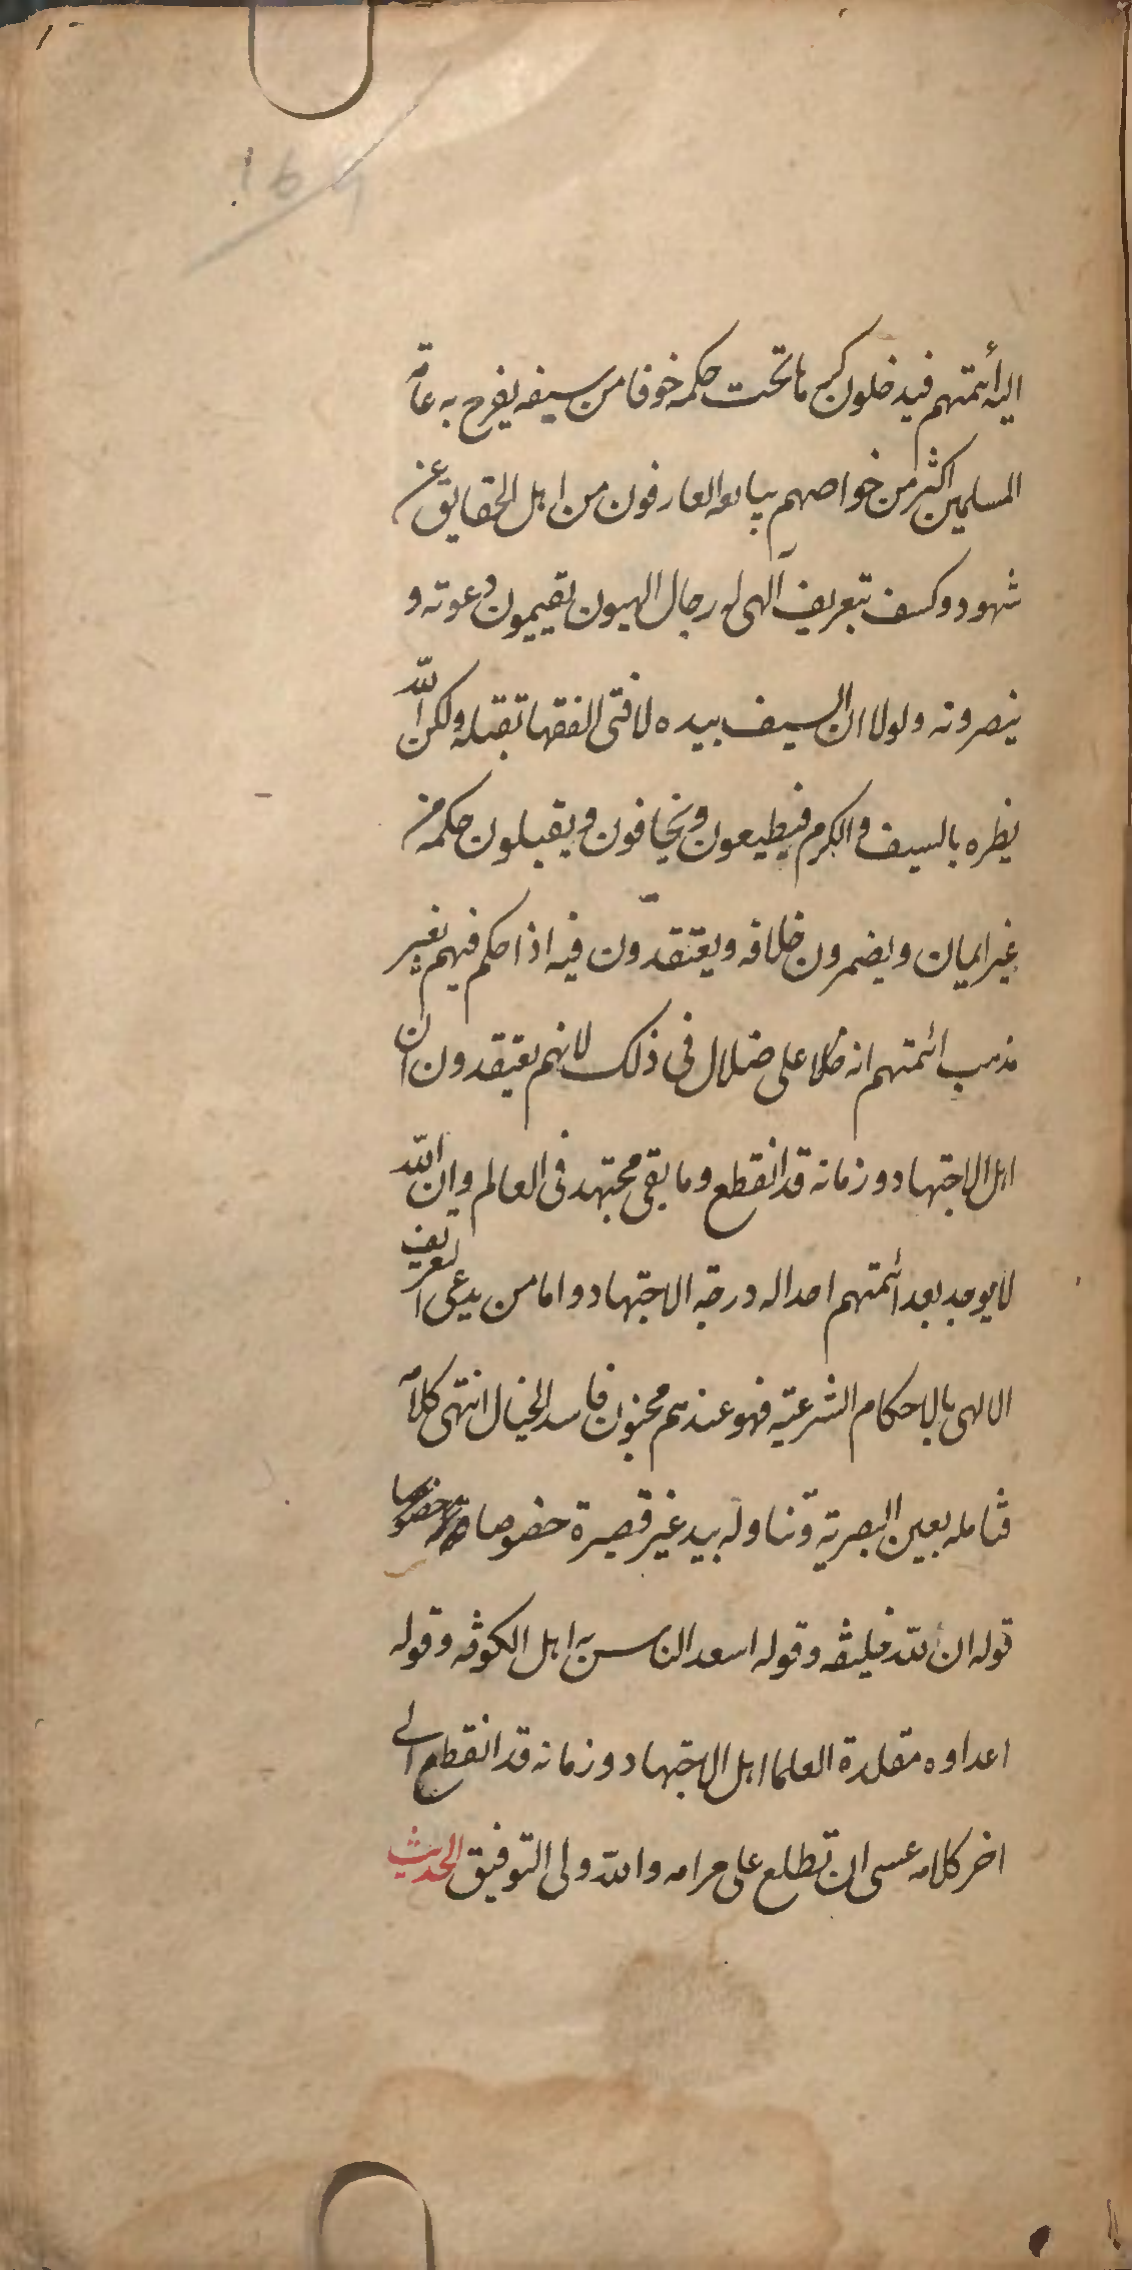 اليه أئمتهم فيدخلون كرها تحت حكمه خوفا من سيفه يفرح به عامة
المسلمين اكثر من خواصهم يبايعه العارفون من اهل الحقايق عن
شهود وكشف بتعريف آلهى له رجال الهيون يقيمون دعوته و
ينصرونه ولولا ان السيف بيده لافتى الفقها بقتله ولكن الله
يظهره بالسيف والكرم فيطيعون ويخافون ويقبلون حكمه من
غير ايمان ويضمرون خلافه ويعتقدون فيه اذا حكم فيهم بغير
مذهب ائمتهم انه على ضلال فى ذلك لانهم يعتقدون ان
اهل الاجتهاد وزمانه قد انقطع وما بقى مجتهد فى العالم وان الله
لا يوجد بعد ائمتهم احدا له درجة الاجتهاد واما من يدعى التعريف
الالهى بالاحكام الشرعية فهو عندهم مجنون فاسد الخيال انتهى كلامه
فتامله بعين البصرية وتناوله بيد غير قصيرة خصوصا
قوله ان لله خليفة وقوله اسعد الناس به اهل الكوفه وقوله
اعداوه مقلدة العلما اهل الاجتهاد وزمانه قد انقطع الى
اخر كلامه عسى ان تطلع على مرامه والله ولى التوفيق الحديث